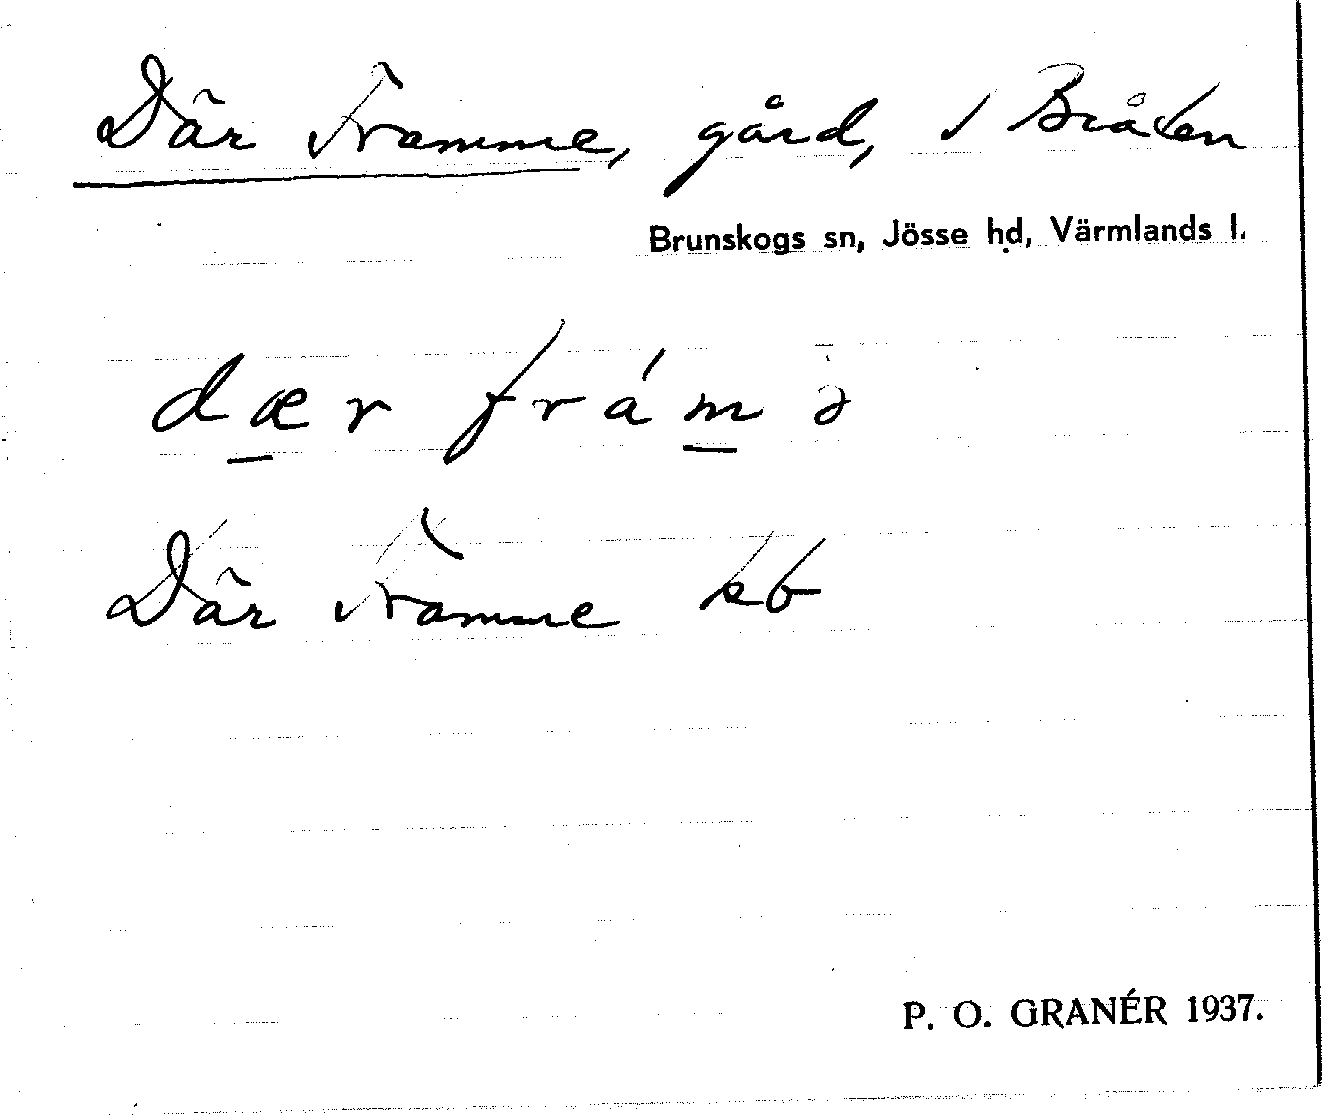 Där Framme, gård, 1 Bråten
Brunskogs sn, Jösse hd, Värmlands l.
dær frámə̀
Där Framme kb
P. O. GRANÉR 1937.